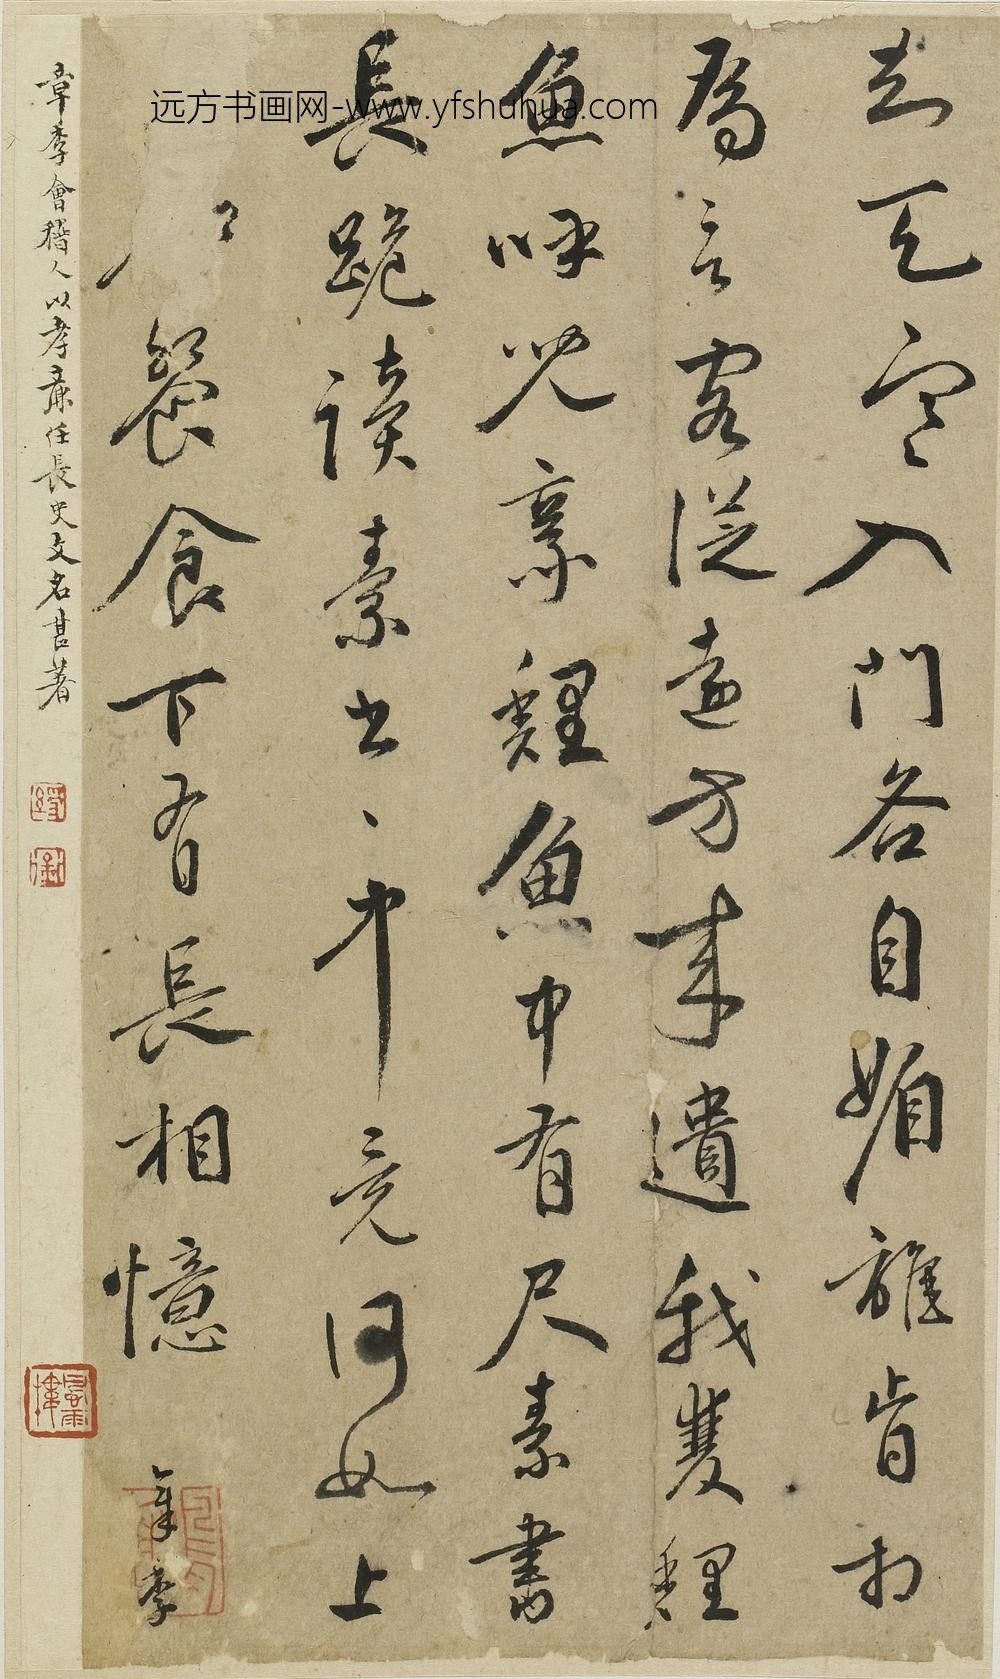 知天寒入門各自媚誰肯相
為言客從遠方來遺我雙鯉
魚呼兒烹鯉魚中有尺素書
長跪讀素書々中竟何如上
餐食下有長相憶
章季
章季會稽人以孝廉任長史文名甚著
远方书画网-www.yfshuhua.com